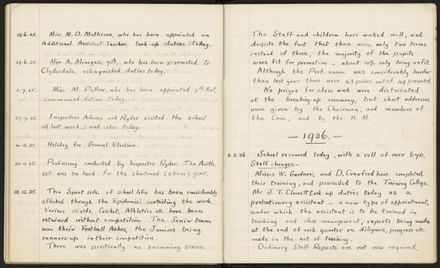 Miss M. D. Matheson, who has been appointed an
Additional Assistant Teacher, took up duties today.
Miss A. Monigan, 7th, who has been promoted to
Clydesdale, relinquished duties today.
Miss M. Pullow, who has been appointed 7th Asst,
commenced duties today.
Inspectors Adams and Ryder visited the school
all last week, and also today.
Holiday for General Election.
Proficiency conducted by Inspector Ryder. The Arith.
set was too hard for the shortened (8 term) year.
The Sport side of school life has been considerably
affected through the Epidemic curtailing the work.
Various shields, Cricket, Athletics etc. have been
retained without competition. The Senior team
won their Football Ashes, the Juniors being
runners-up in their competition.
There was practically no swimming season
The Staff and children have worked well, and
despite the fact that there were only two terms
instead of three, the majority of the pupils
were fit for promotion - about 10% only being unfit.
Although the Prof. exam. was considerably harder
than last year there were
No prizes for class work were distributed
at the breaking-up ceremony, but short addresses
were given by the Chairman, and members of
the Com., and by the H. M.
— 1926. —
School resumed today, with a roll of over 690.
Staff changes:-
Misses W. Gardner, and D. Crawford have completed
their training, and proceeded to the Training College.
Mr. J. T. took up duties today as a
probationary assistant - a new type of appointment,
under which the assistant is to be trained in
teaching and class management, reports being made
at the end of each quarter on diligence, progress etc.
made in the art of teaching.
Ordinary Staff Reports are not now required.